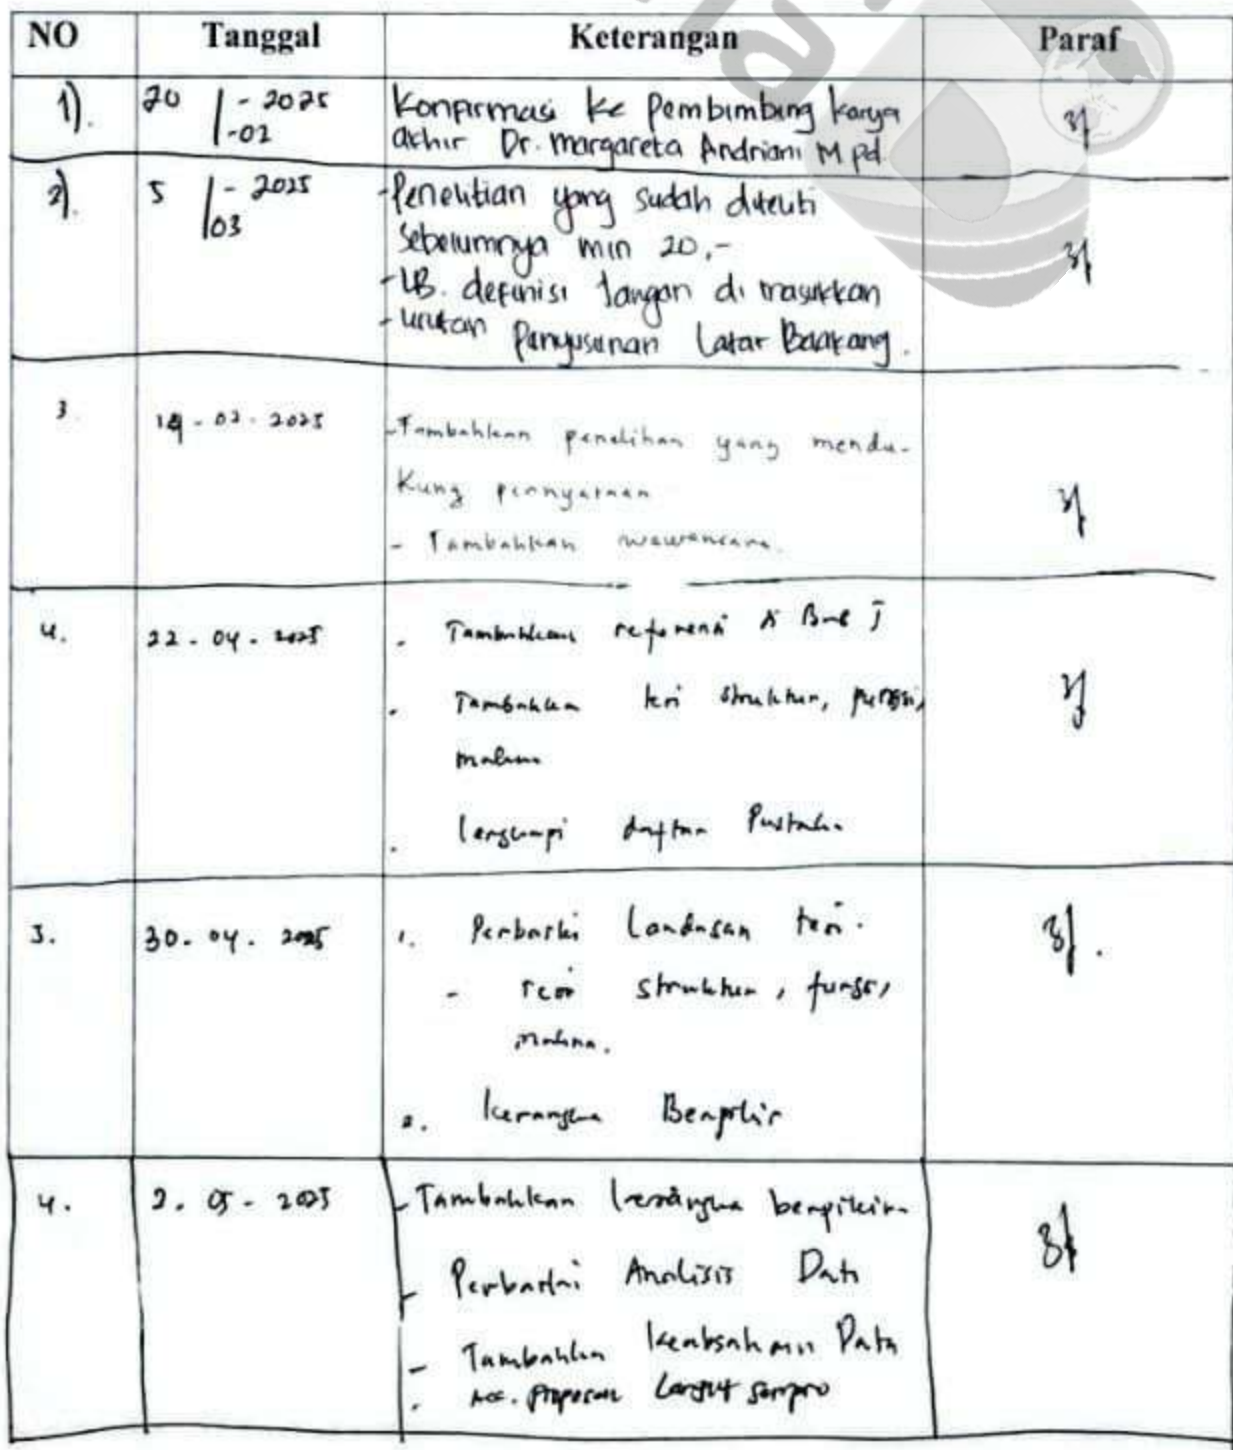 NO Tanggal Keterangan Paraf
1). 20 / - 2025 Konfirmasi ke Pembimbing karya
-02 akhir Dr. Margareta Andriani M pd
2). 5 / - 2025 - Penelitian yang sudah diteliti
03 Sebelumnya min 20.-
- LB. definisi Jangan di masukkan
- urutan Penyusunan Latar Belakang.
3. - 2025 - Tambahkan penelitian yang mendu-
kung pernyataan
- Tambahkan wawancara.
4. 22 - 04 - 2025 Tambahkan referensi di Bab I
Tambahkan teori struktur, fungsi,
makna
lengkapi daftar Pustaka
5. 30. 04. 2025 1. Perbaiki Landasan teori.
- teori struktur, fungsi,
makna.
2. kerangka Berpikir
4. 2. 05 - 2025 - Tambahkan kerangka berpikir
- Perbaiki Analisis Data
- Tambahkan keabsahan Data
acc. proposal Lanjut sempro